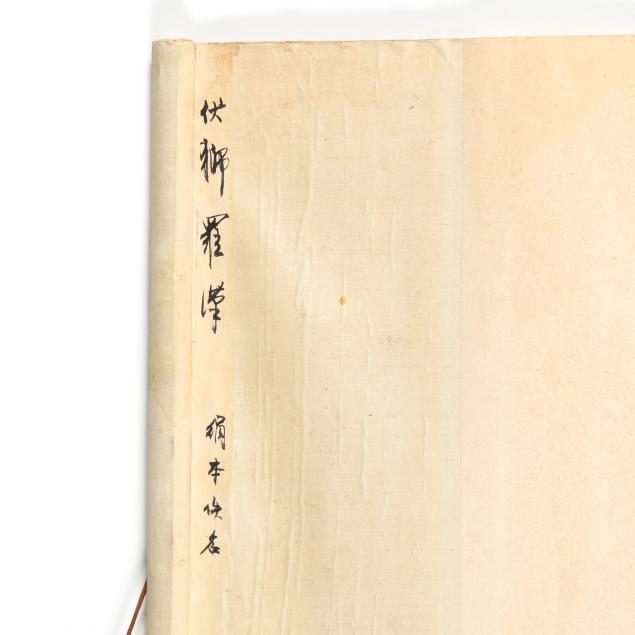 伏獅羅漢
絹本佚名